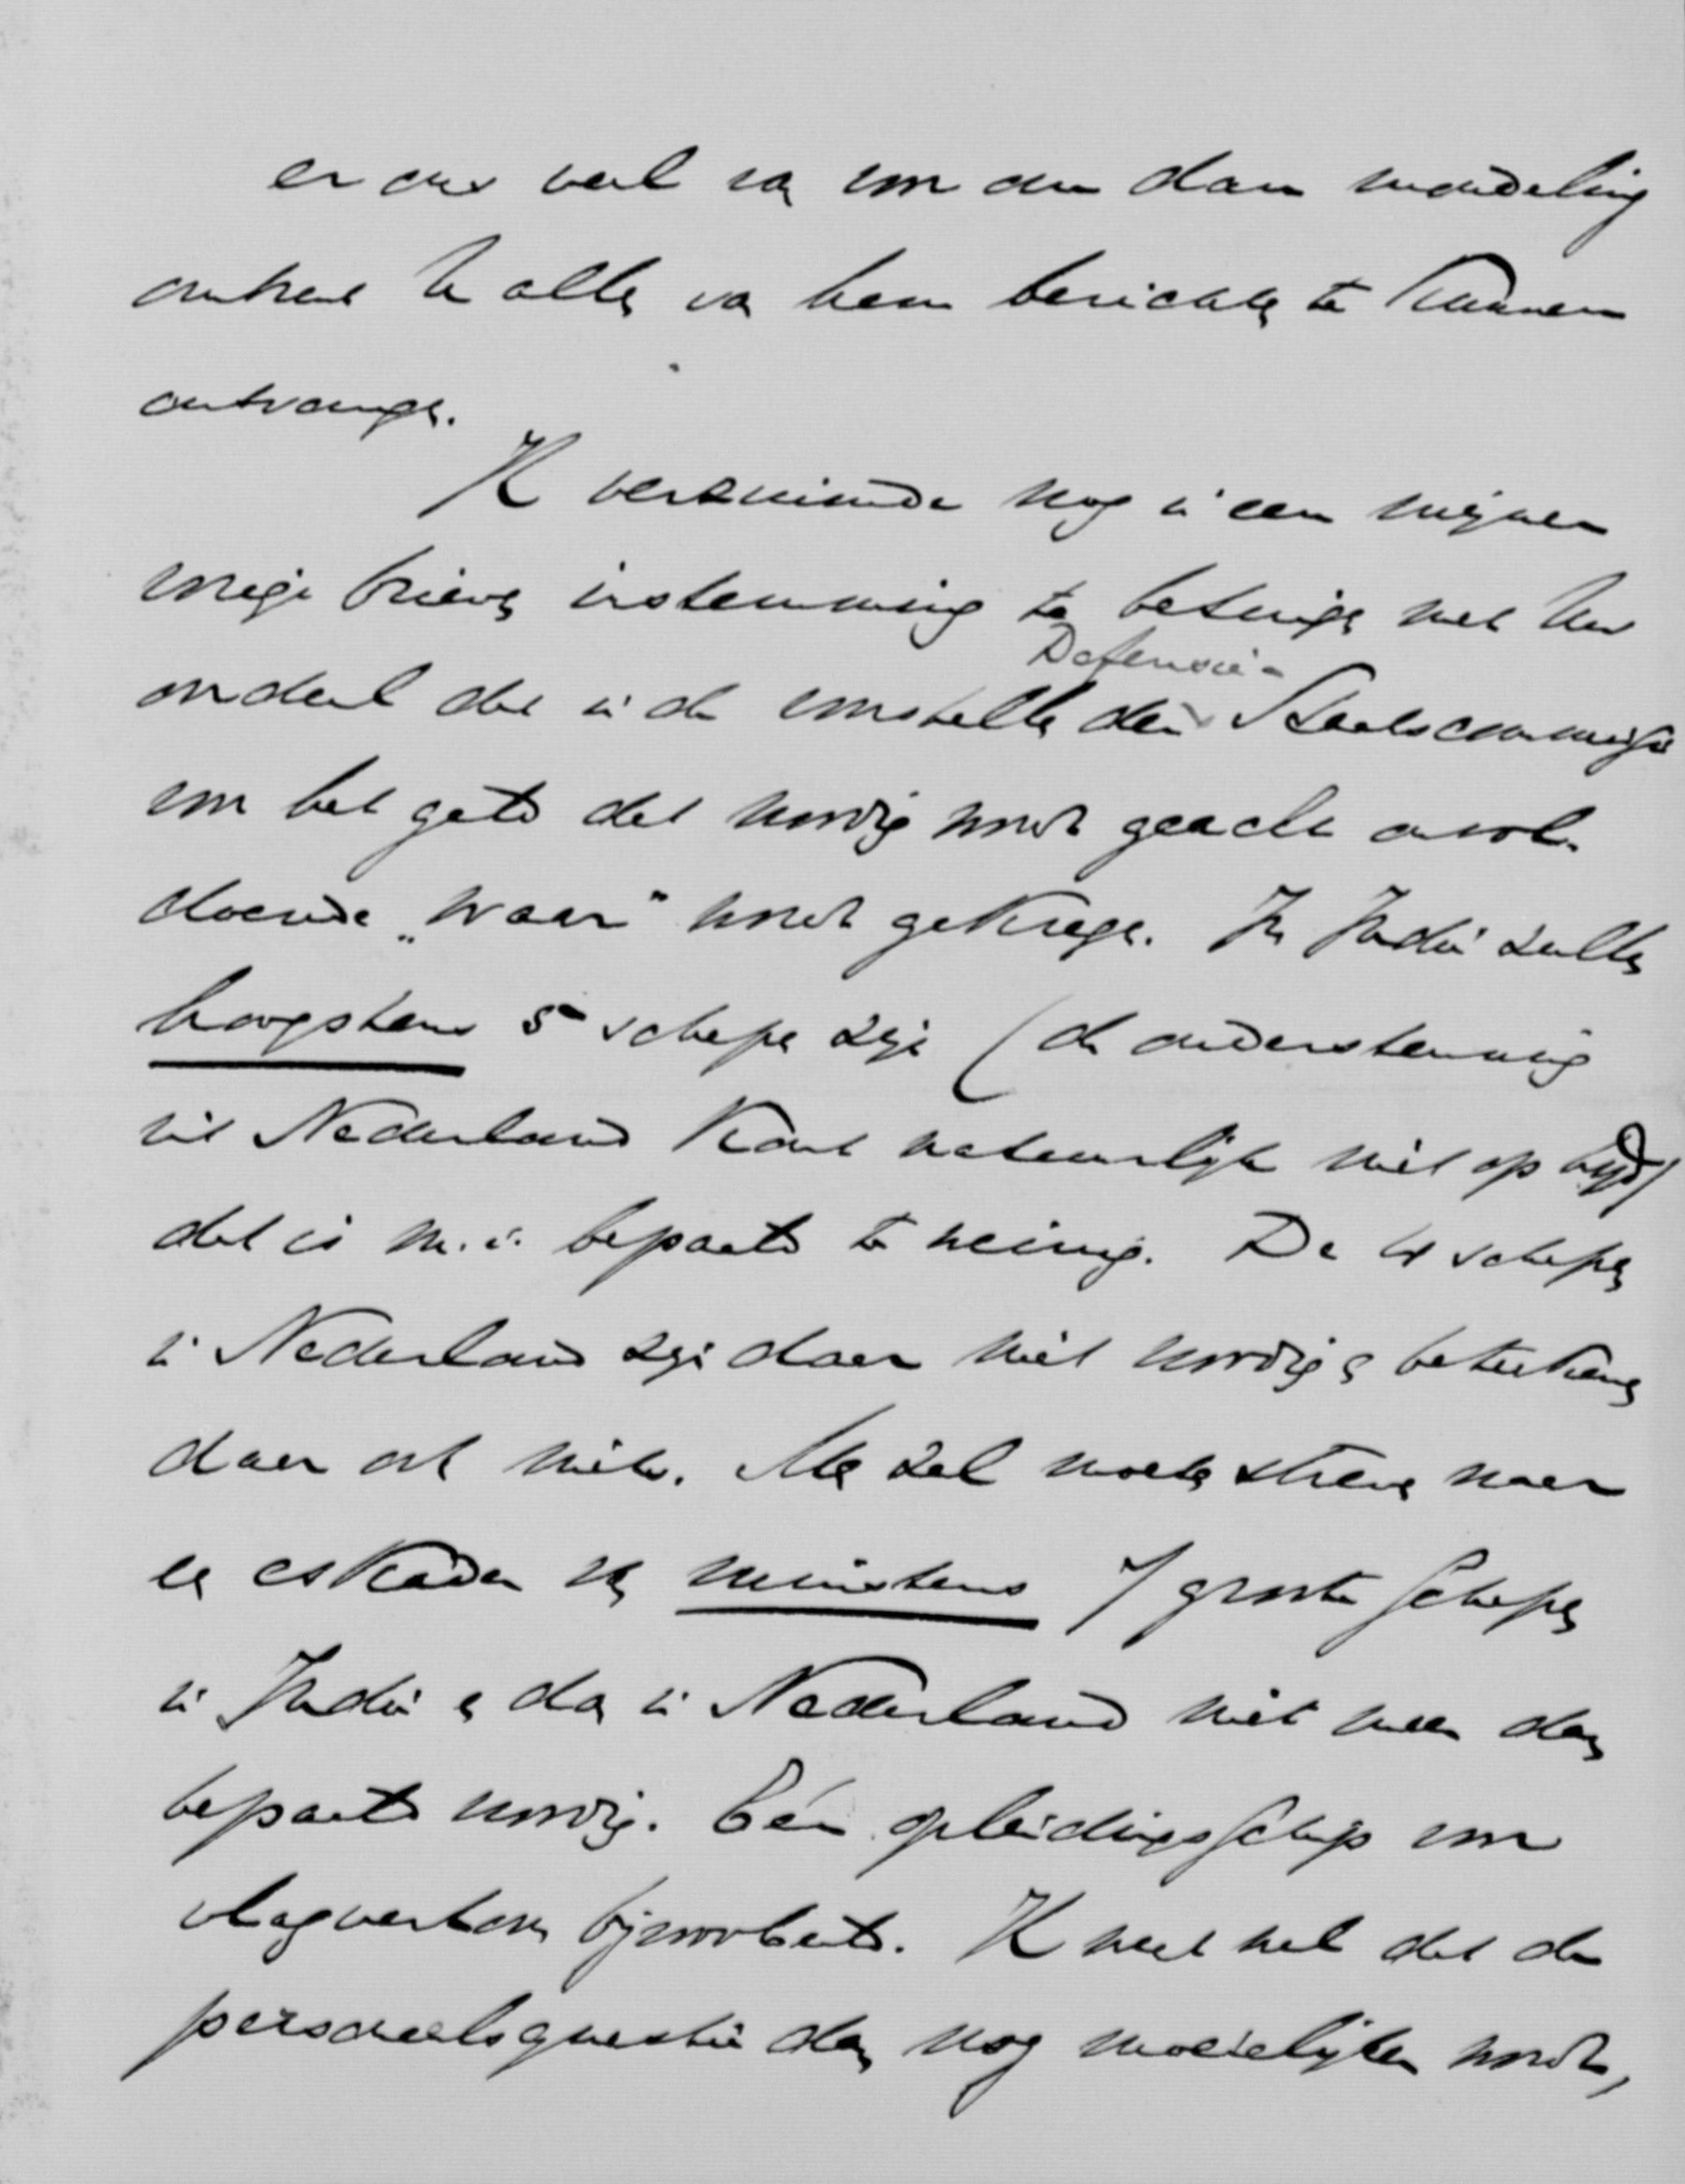 er ons veel van om ons dan mondeling
omtrent U alles van hem berichten te kunnen
ontvangen.
Ik verzuimde nog in een mijner
vorige brieven instemming te betuigen met Uw
oordeel dat in de voorstellen der Defensie-Staatscommissie
voor het geld dat noodig wordt geacht onvol-
doende „waar" wordt gekregen. In Indië zullen
hoogstens 5 schepen zijn (de ondersteuning
uit Nederland komt natuurlijk niet op tijd)
dat is m.i. bepaald te weinig. De 4 schepen
in Nederland zijn daar niet noodig en beteekenen
daar ook niets. Men zal moeten streven naar
een eskader van minstens 7 groote schepen
in Indië en dan in Nederland niet meer dan
bepaald noodig. Eén opleidingsschip voor
vlagvertoon bijvoorbeeld. Ik weet wel dat de
personeelsquestie dan nog moeielijker wordt,